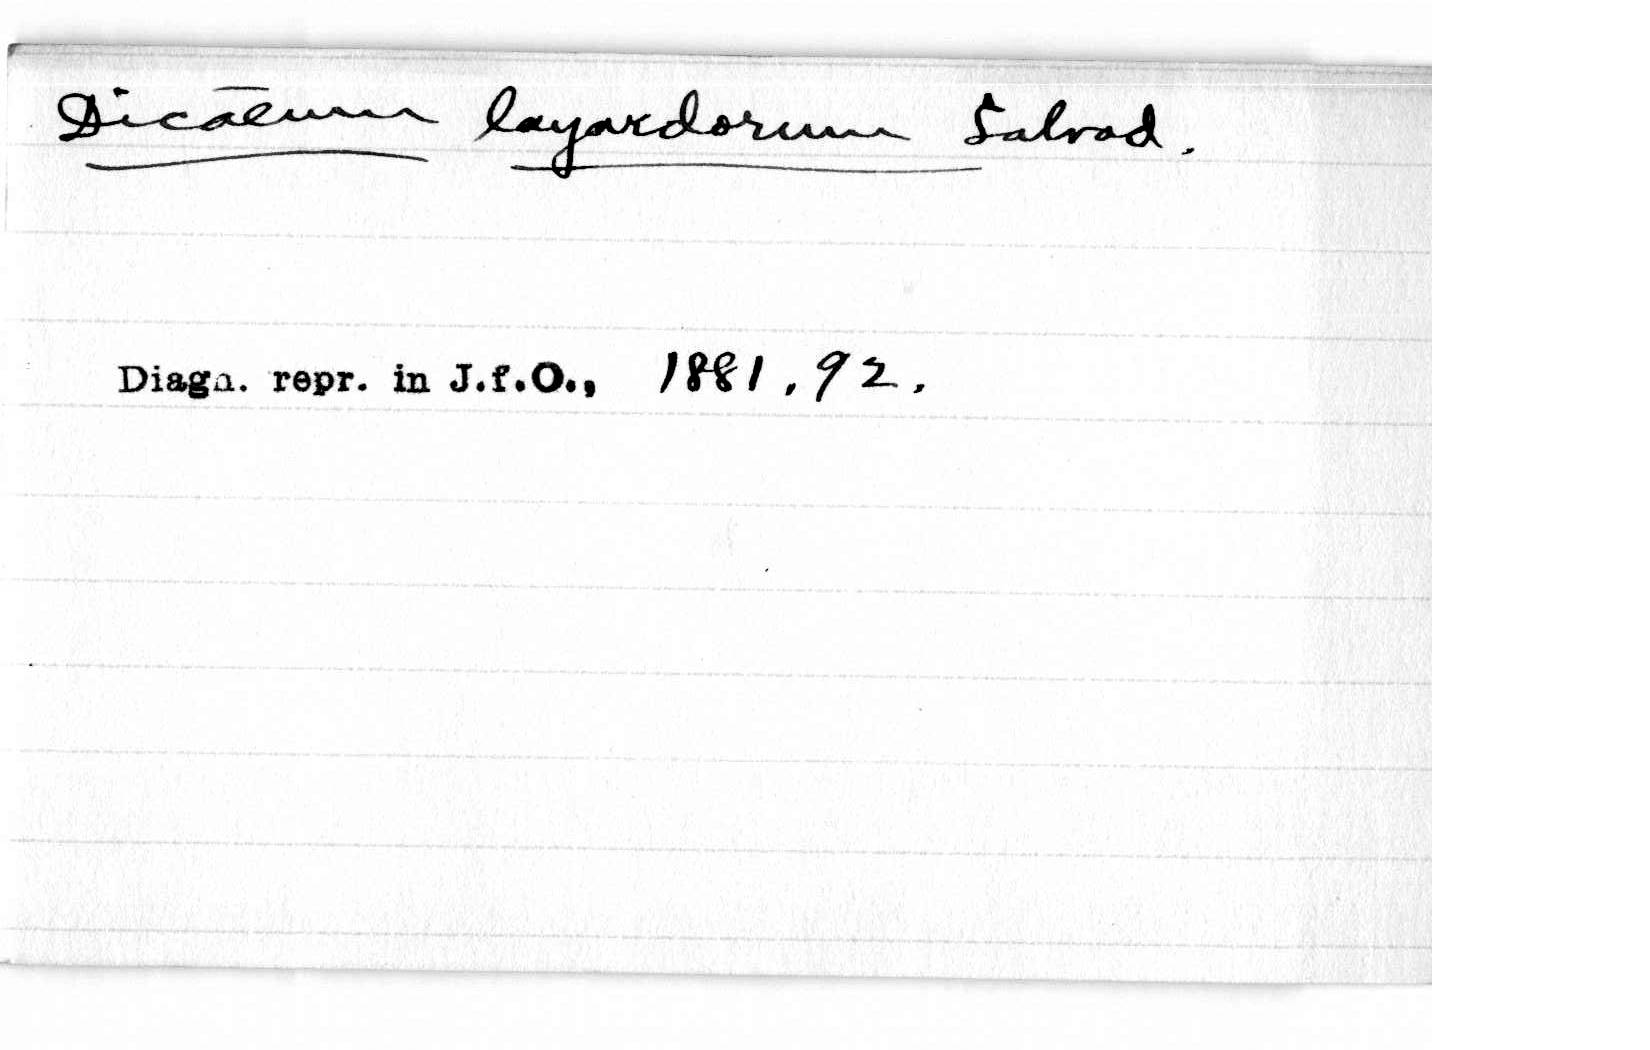 Dicaeum layardorum Salvad.
Diagn. repr. in J.f.O., 1881, 92.